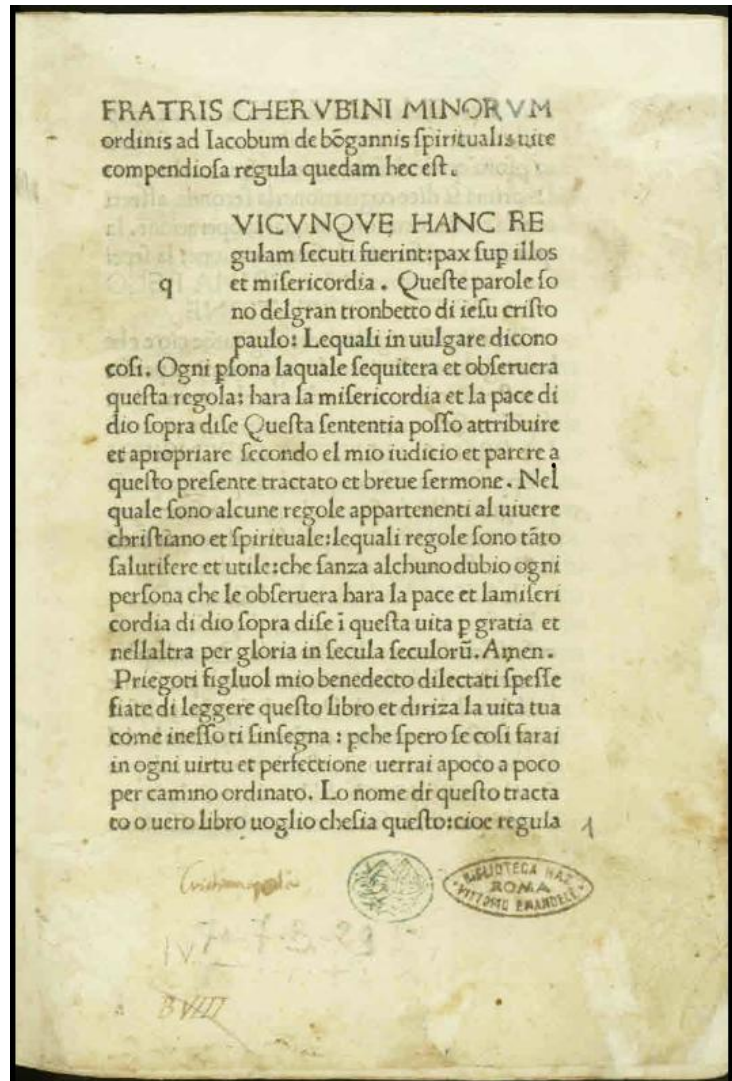 FRATRIS CHERVBINI MINORVM
ordinis ad Iacobum de bōgannis ſpiritualis uite
compendioſa regula quedam hec eſt.
VICVNQVE HANC RE
gulam ſecuti fuerint:pax ſup illos
q et miſericordia. Queſte parole ſo
no delgran tronbetto di ieſu criſto
paulo: Lequali in uulgare dicono
coſi. Ogni pſona laquale ſequitera et obſeruera
queſta regola: hara la miſericordia et la pace di
dio ſopra diſe Queſta ſententia poſſo attribuire
et apropriare ſecondo el mio iudicio et parere a
queſto preſente tractato et breue ſermone. Nel
quale ſono alcune regole appartenenti al uiuere
chriſtiano et ſpirituale:lequali regole ſono tāto
ſalutifere et utile:che ſanza alchuno dubio ogni
perſona che le obſeruera hara la pace et lamiſeri
cordia di dio ſopra diſe ī queſta uita p gratia et
nellaltra per gloria in ſecula ſeculorū. Amen.
Priegoti figluol mio benedecto dilectati ſpeſſe
fiate di leggere queſto libro et diriza la uita tua
come ineſſo ti ſinſegna : pche ſpero ſe coſi farai
in ogni uirtu et perfectione uerrai apoco a poco
per camino ordinato. Lo nome di queſto tracta
to o uero libro uoglio cheſia queſto:cioe regula
1
BIBLIOTECA NAZ
ROMA
VITTORIO EMANUELE
B VIII